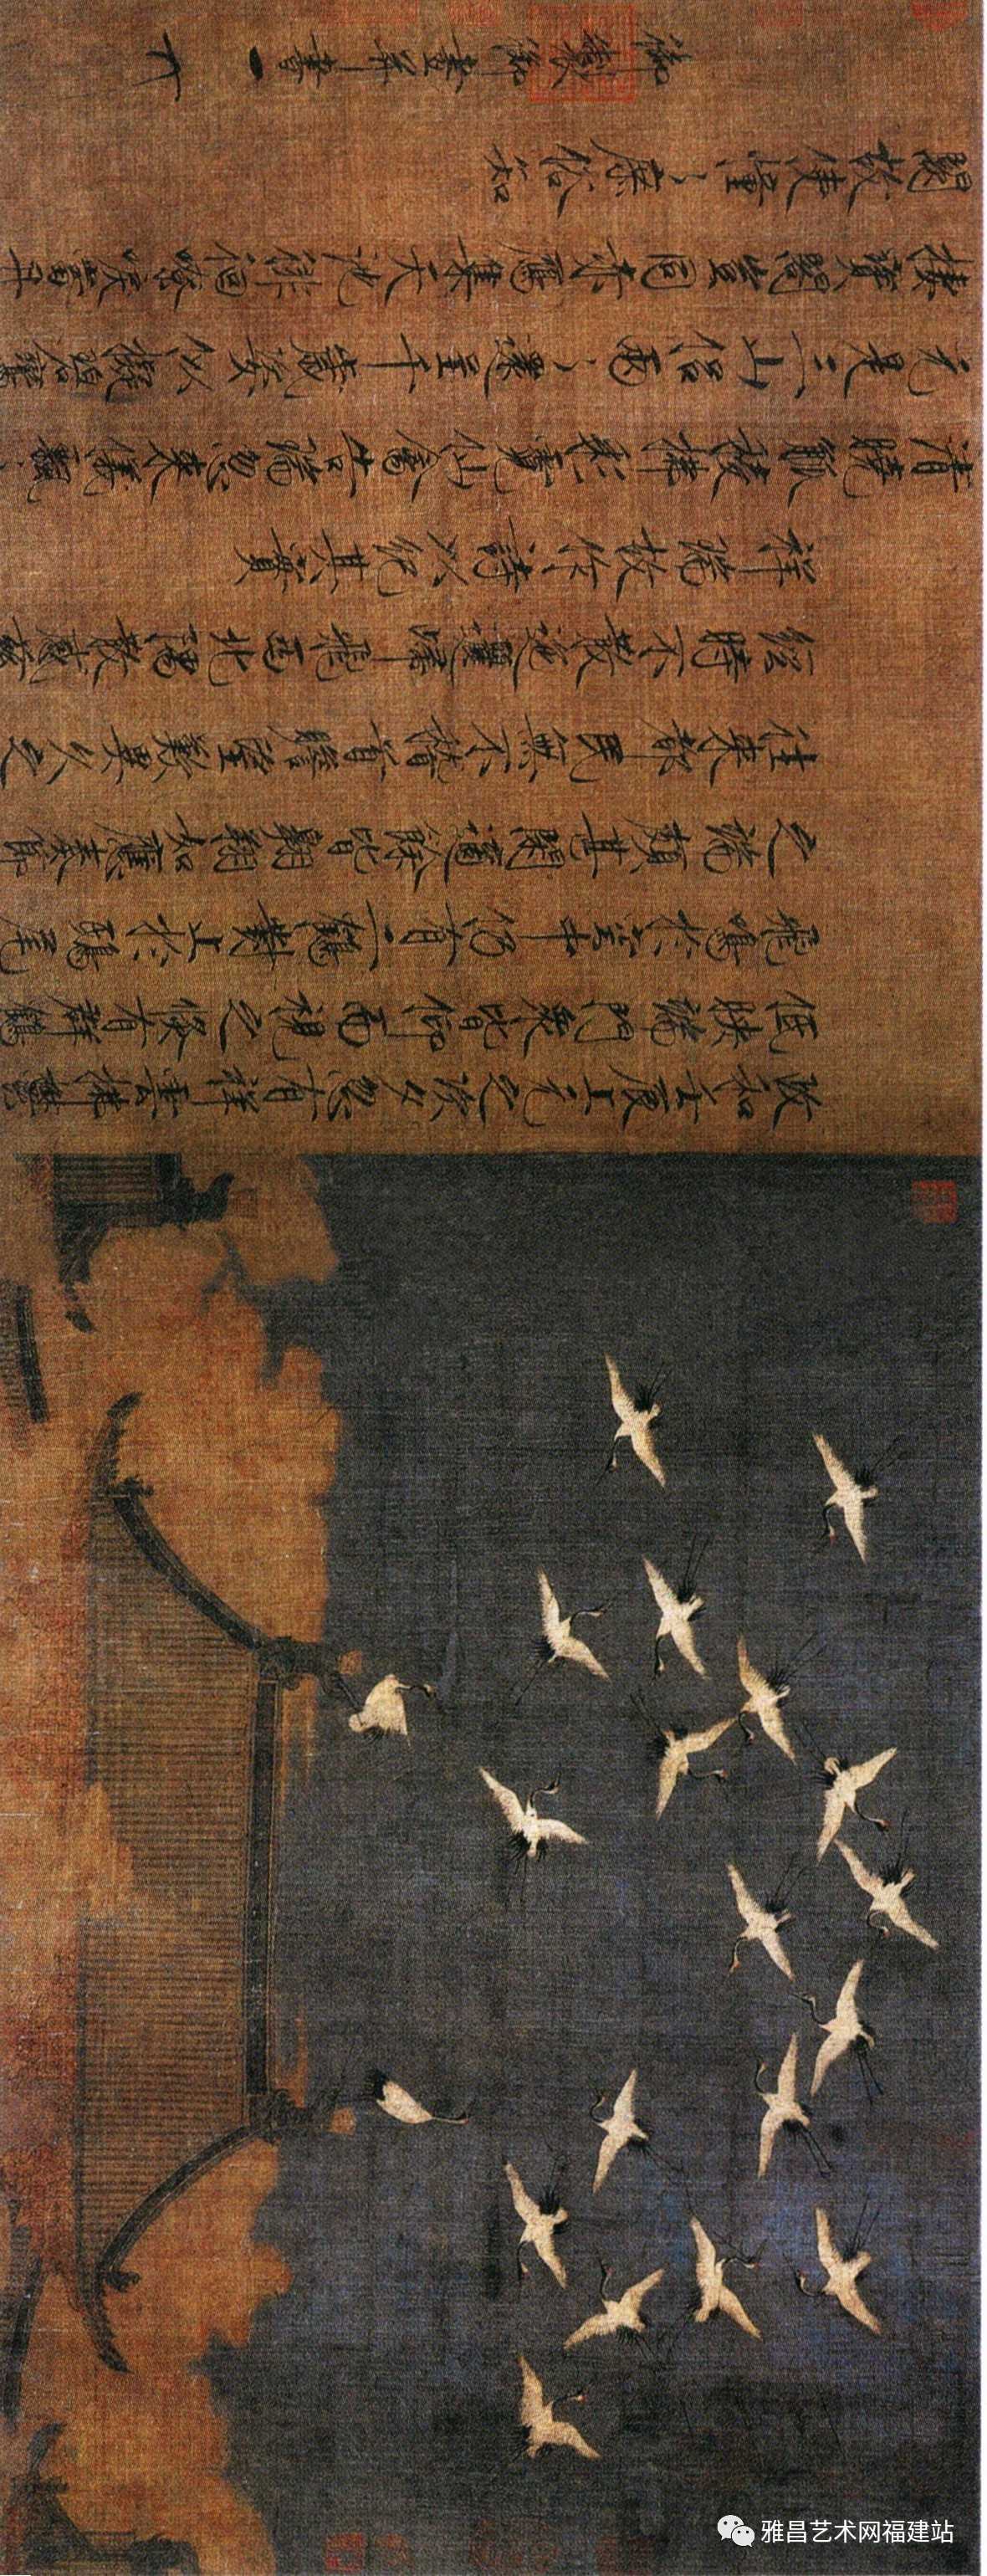 政和壬辰上元之次夕忽有祥雲拂鬱
低映端門衆皆仰而視之倐有群鶴
飛鳴於空中仍有二鶴對止於鴟尾
之端頗甚閒適餘皆翱翔如應奏節
往来都民無不稽首瞻望歎異久之
經時不散迤邐歸飛西北隅散感兹
祥瑞故作詩以紀其實
清曉觚稜拂彩霓仙禽告瑞忽来儀飄〃
元是三山侣兩〃還呈千歲姿似擬碧鸞
棲寳閣豈同赤鴈集天池徘徊嘹唳當丹
闕故使憧〃庶俗知
御製御畫并書
雅昌艺术网福建站